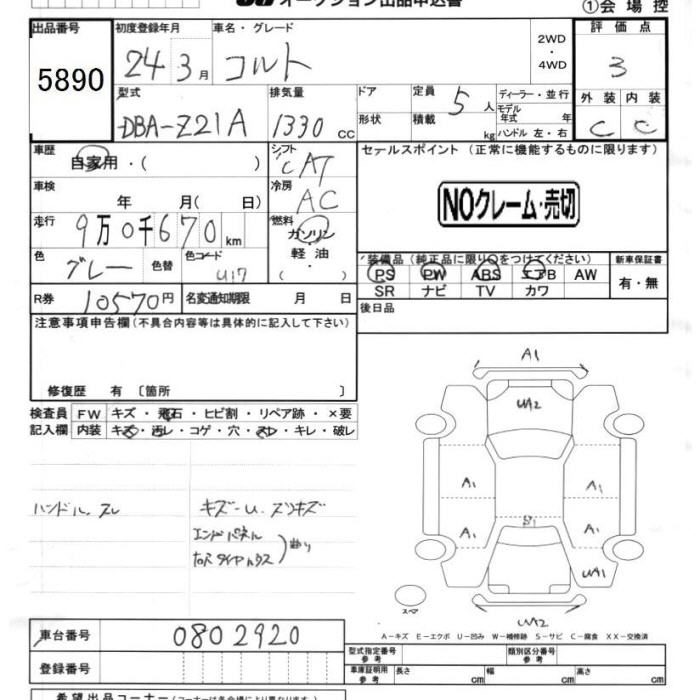 オークション出品申込書
①会場控
出品番号 5890
初度登録年月 24年3月
車名・グレード コルト
2WD・4WD
評価点 3
型式 DBA-Z21A
排気量 1330 CC
ドア 形状
定員 5人 積載 kg
ディーラー・並行
モデル年式 年
ハンドル 左・右
外装 C 内装 C
車歴 自家用・( )
シフト CAT
セールスポイント (正常に機能するものに限ります)
車検 年 月( 日)
冷房 AC
NOクレーム・売切
走行 9万0千670km
燃料 ガソリン・軽油 ( )
色 グレー 色替 色コード U17
装備品 (純正品に限り○をつけてください) 新車保証書
PS PW ABS エアB AW 有・無
SR ナビ TV カワ
R券 10570円 名変通知期限 月 日
後日品
注意事項申告欄 (不具合内容等は具体的に記入して下さい)
修復歴 有 〔箇所 〕
検査員 FW キズ・飛石・ヒビ割・リペア跡・×要
記入欄 内装 キズ・汚レ・コゲ・穴・スレ・キレ・破レ
ハンドル、スレ
キズ-U.スリキズ
エンドパネル
曲り
A1
UA2
A1
A1
S1
A1
A1
UA1
スペア
UA2
A-キズ E-エクボ U-凹み W-補修跡 S-サビ C-腐食 XX-交換済
車台番号 0802920
型式指定番号 参考 類別区分番号 参考
登録番号
車庫証明用 参考 長さ cm 幅 cm 高さ cm
希望出品コーナー